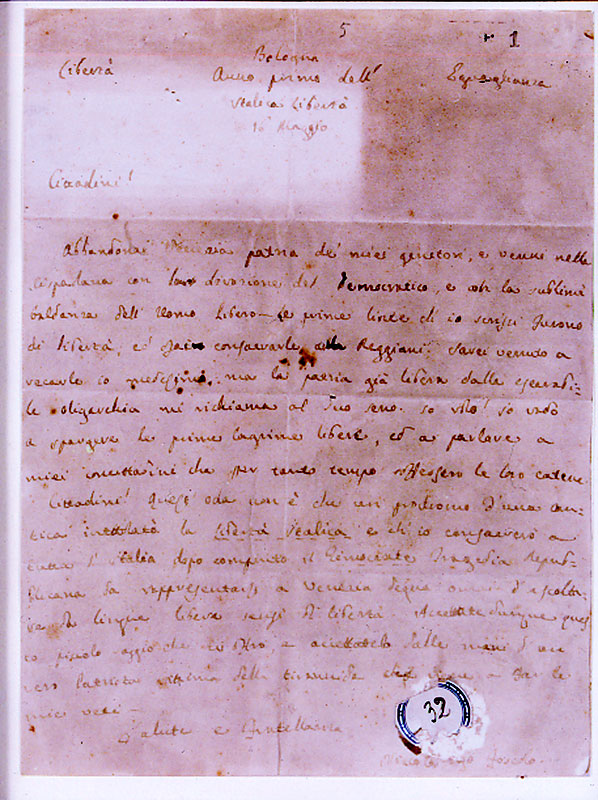 5
1
Libertà Bologna Eguaglianza
Anno primo dell'
Italica Libertà
16 Maggio
Cittadini!
Abbandonai Venezia patria de' miei genitori, e venni nella
Cispadana con la divozione del democratico, e con la sublime
baldanza dell' Uomo libero — Le prime linee ch' io scrissi furono
di libertà, ed consacrarle Reggiani. Sarei venuto a
recarle io medesimo, ma la patria già libera dalla esecrabi-
le oligarchia mi richiama al suo seno. Io volo! Io vado
a spargere le prime lagrime libere, ed a parlare a
miei concittadini che per tanto tempo soffersero le loro catene
Cittadini! Quest' oda non è che un prodromo d'una can-
tica intitolata la Libertà Italica e ch' io consacrerò a
tutta l' Italia dopo compiuto il Timocrate Tragedia Repub-
blicana da rappresentarsi a Venezia
lingua libera sensi di libertà. Accettate dunque ques
to piccolo saggio che vi offro, e accettatelo dalle mani d' un
vero Patriota vittima della tirannide
mie voci —
Salute e Fratellanza
32
Niccolò Ugo Foscolo